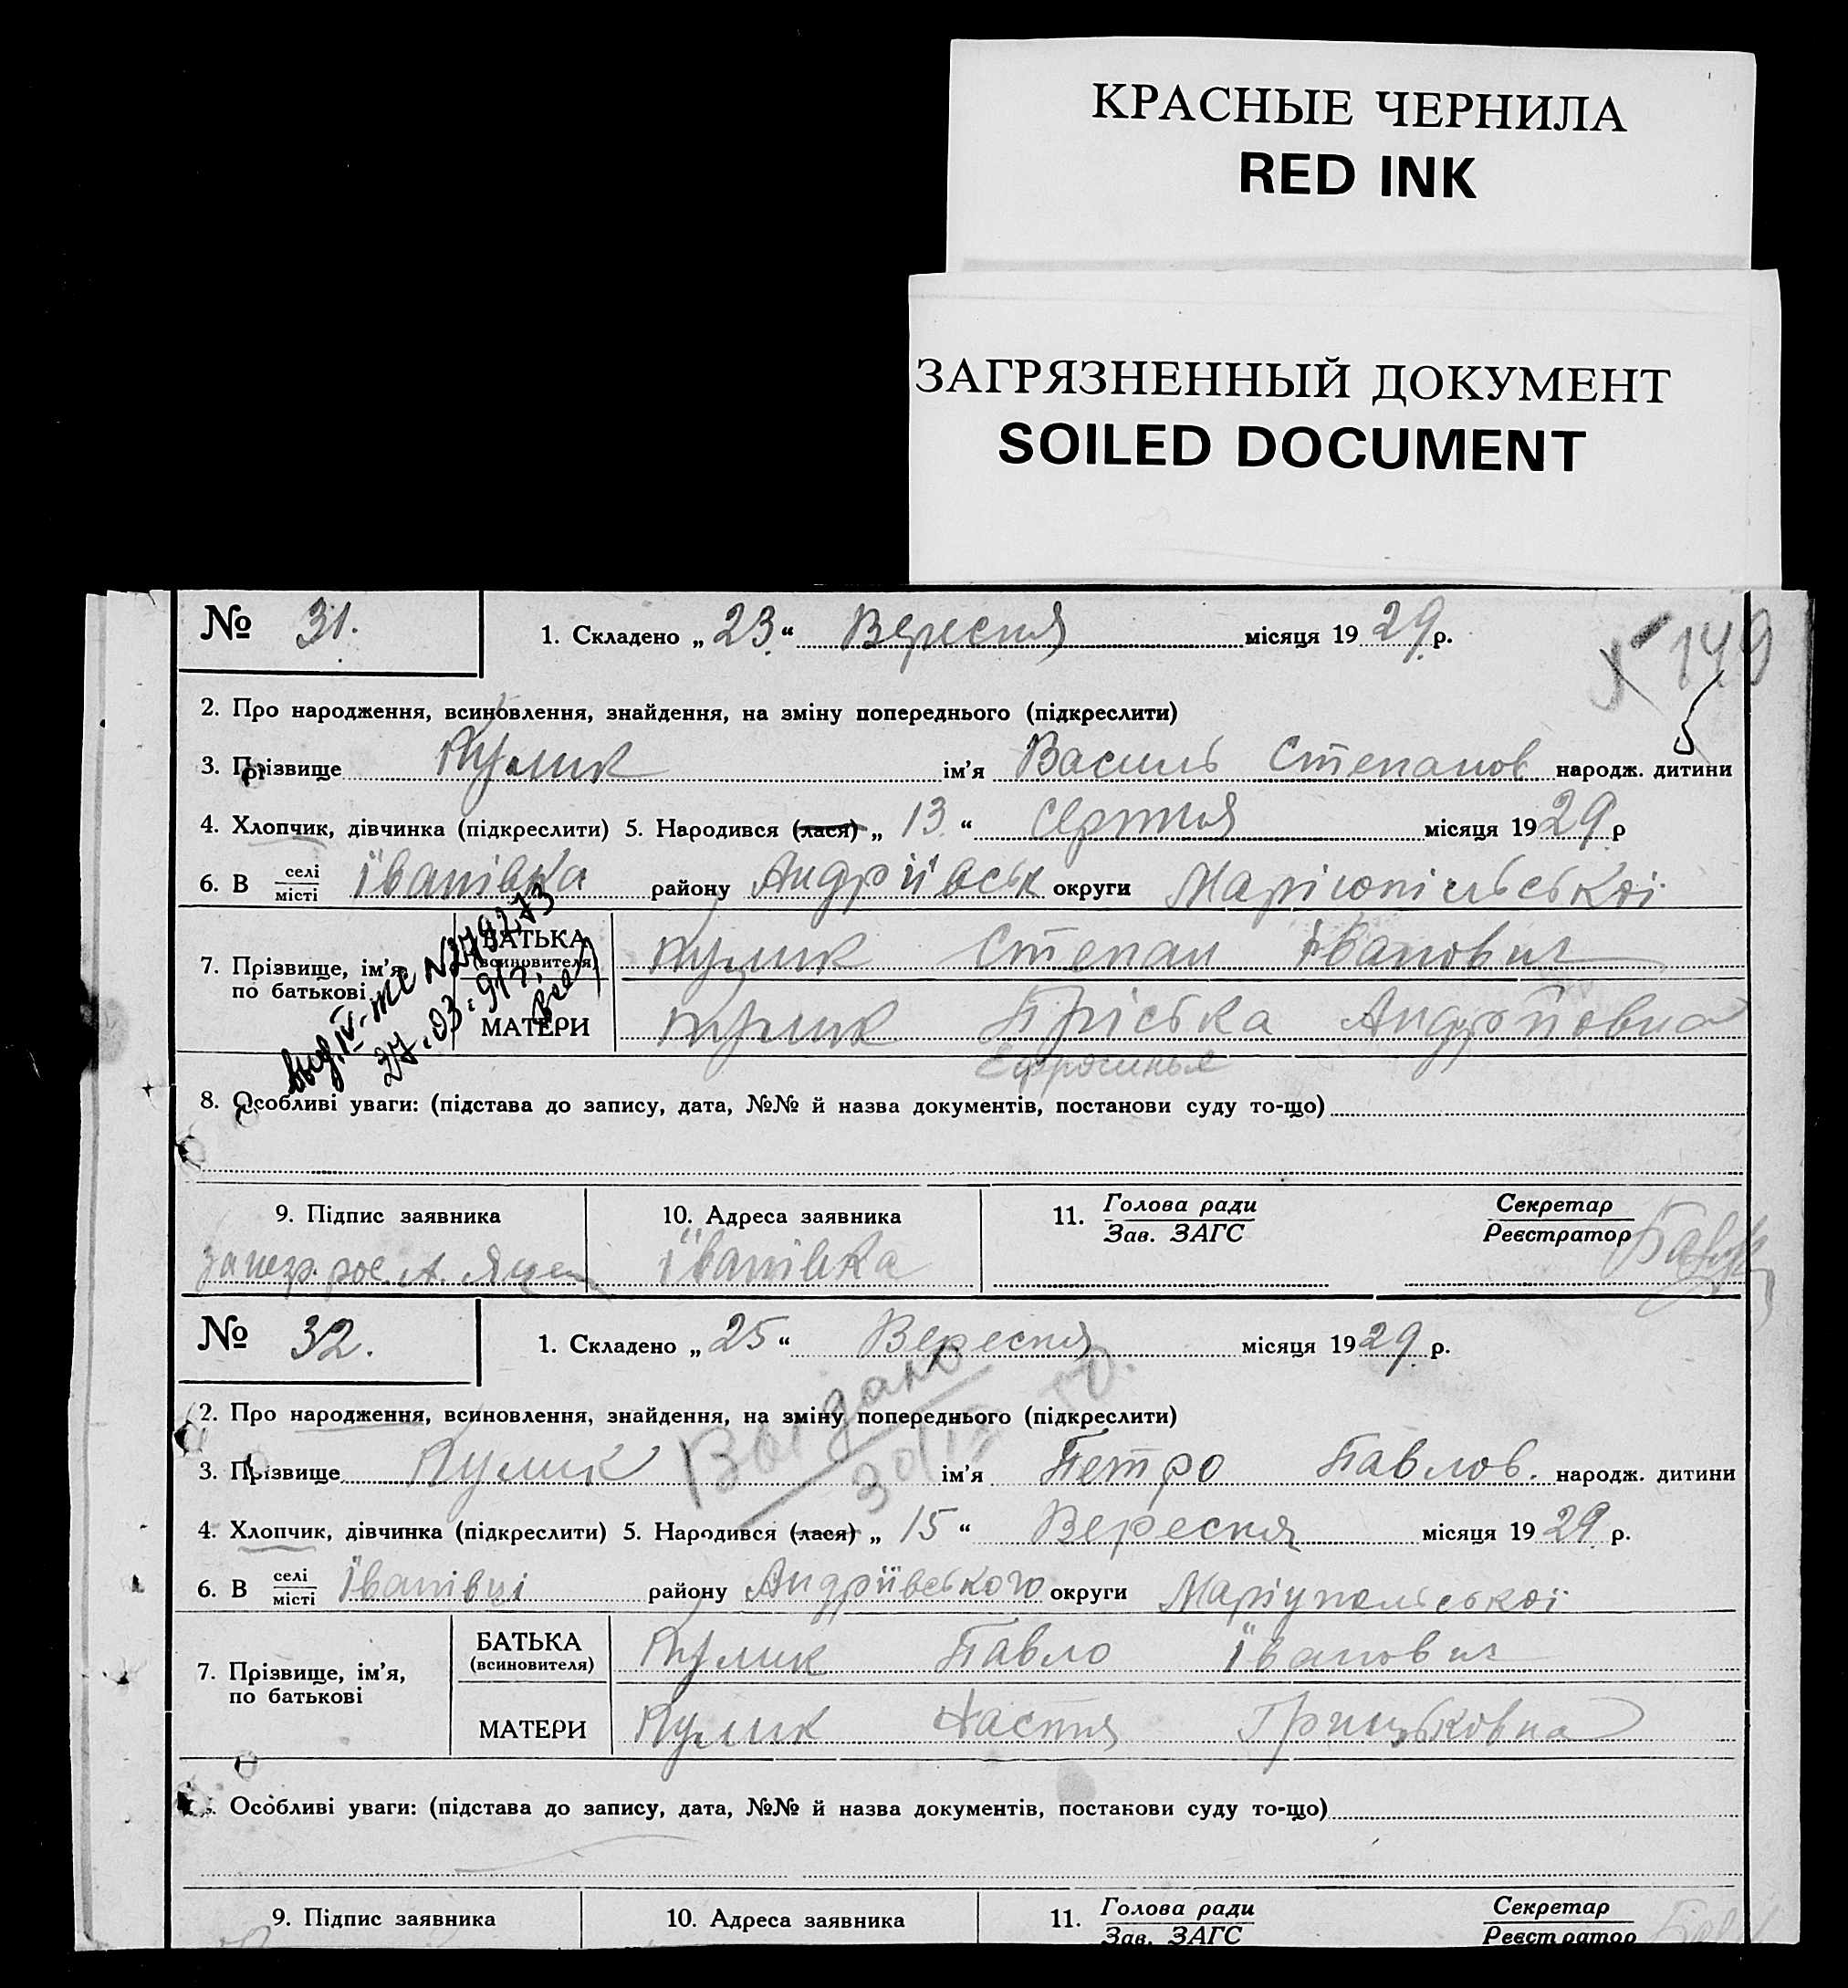 КРАСНЫЕ ЧЕРНИЛА
RED INK
ЗАГРЯЗНЕННЫЙ ДОКУМЕНТ
SOILED DOCUMENT
№ 31. 1. Складено „ 23 “ Вересня місяця 1929 р.
149
5
2. Про народження, всиновлення, знайдення, на зміну попереднього (підкреслити)
3. Прізвище Кулик ім'я Василь Степанов народж. дитини
4. Хлопчик, дівчинка (підкреслити) 5. Народився (лася) „ 13 “ серпня місяця 1929 р
6. В селі/місті Іванівка району Андріївськ округи Маріюпільської
7. Прізвище, ім'я, по батькові
БАТЬКА (всиновителя) Кулик Степан Іванович
МАТЕРИ Кулик Пріська Андріївна
Ефросинья
27.03.91г.
8. Особливі уваги: (підстава до запису, дата, №№ й назва документів, постанови суду то-що)
9. Підпис заявника 10. Адреса заявника 11. Голова ради/Зав. ЗАГС Секретар/Реєстратор
Іванівка
№ 32. 1. Складено „ 25 “ Вересня місяця 1929 р.
Выдано
2. Про народження, всиновлення, знайдення, на зміну попереднього (підкреслити)
3. Прізвище Кулик ім'я Петро Павлов. народж. дитини
4. Хлопчик, дівчинка (підкреслити) 5. Народився (лася) „ 15 “ Вересня місяця 1929 р.
6. В селі/місті Іванівці району Андріївського округи Маріупольської
7. Прізвище, ім'я, по батькові
БАТЬКА (всиновителя) Кулик Павло Іванович
МАТЕРИ Кулик Настя Грицьковна
Особливі уваги: (підстава до запису, дата, №№ й назва документів, постанови суду то-що)
9. Підпис заявника 10. Адреса заявника 11. Голова ради/Зав. ЗАГС Секретар/Реєстратор